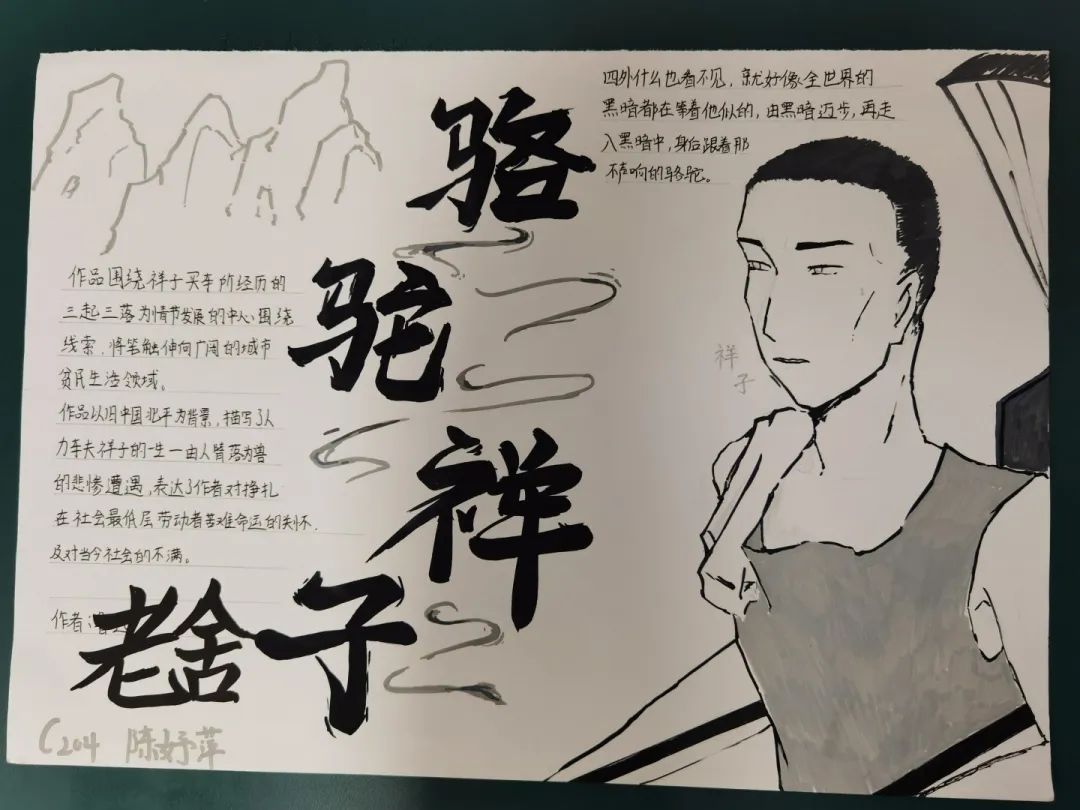 骆
驼
祥
子
老舍
四外什么也看不见，就好像全世界的
黑暗都在等着他似的，由黑暗迈步，再走
入黑暗中，身后跟着那
不声响的骆驼。
祥
子
作品围绕祥子买车所经历的
三起三落为情节发展的中心围绕
线索，将笔触伸向广阔的城市
贫民生活领域。
作品以旧中国北平为背景，描写了人
力车夫祥子的一生一由人堕落为兽
的悲惨遭遇，表达了作者对挣扎
在社会最低层劳动者苦难命运的关怀．
及对当今社会的不满。
作者：
C204 陈妤萍